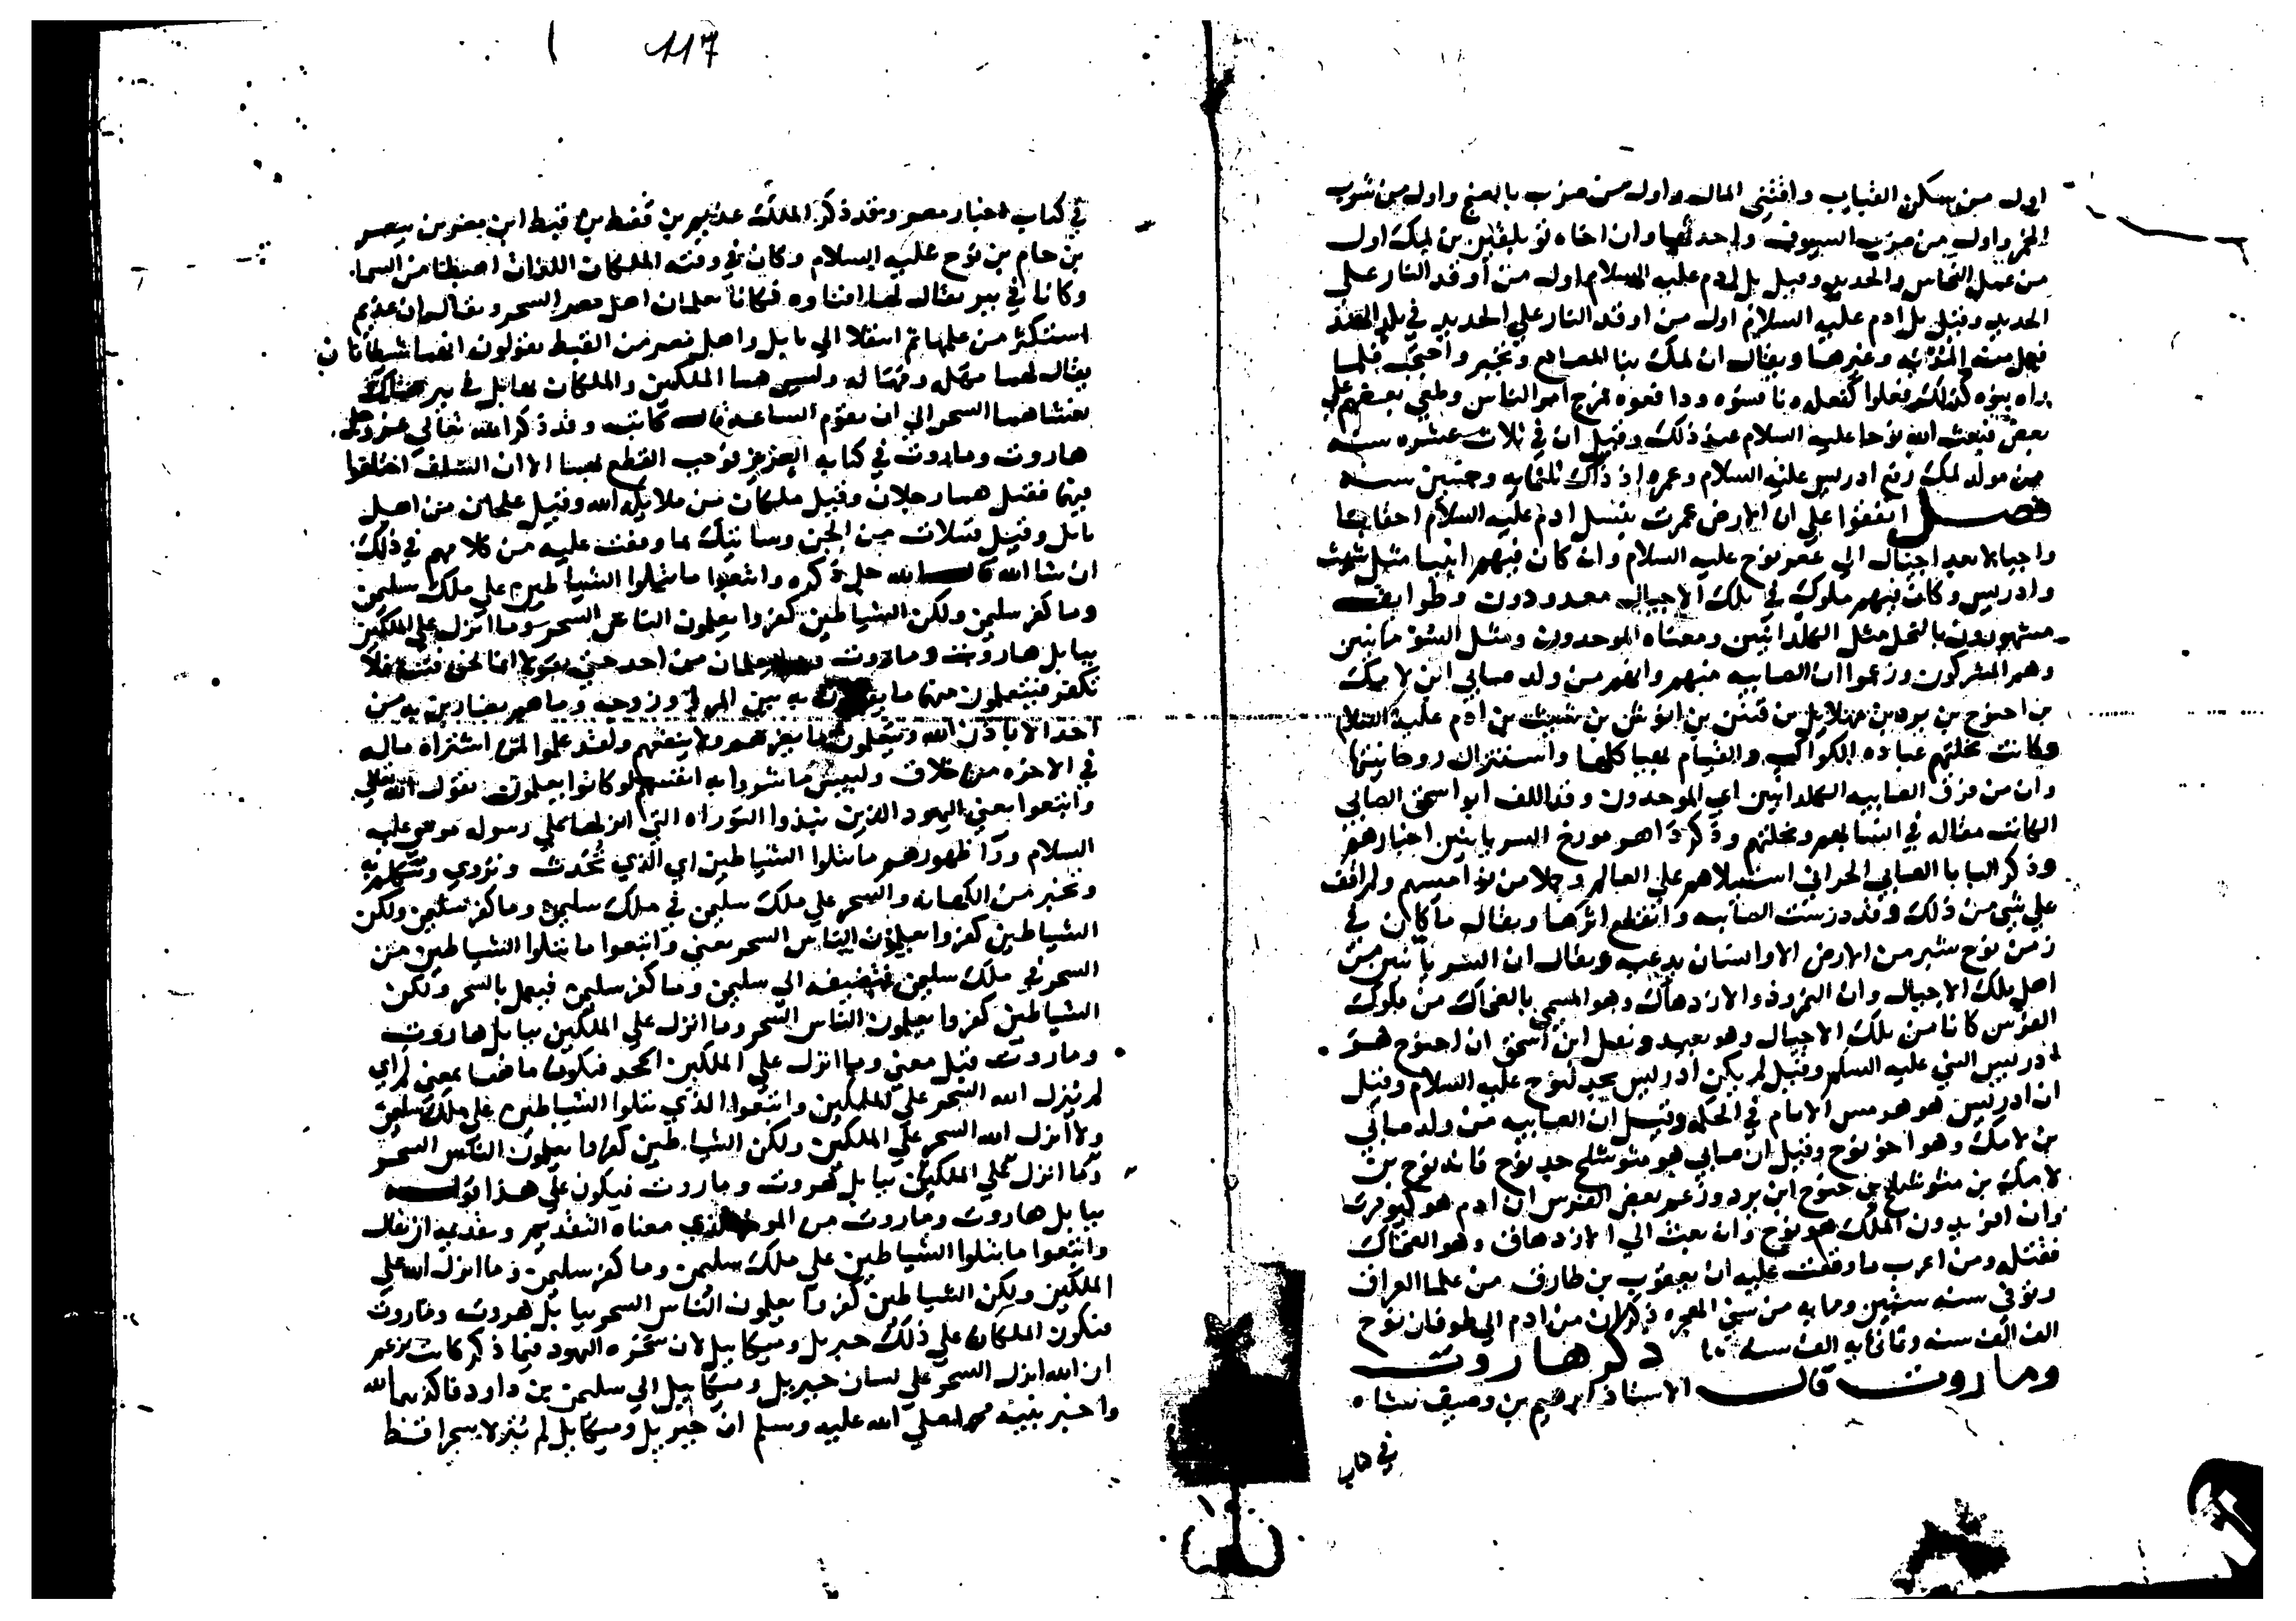 117
اول من سكن القباب واقتنى المال واول من ضرب بالصنج واول من شرب
الخمر واول من ضرب السيوف واحدثها وان اخاه توبلقين بن لمك اول
من عمل النحاس والحديد وقيل بل ادم عليه السلام اول من أوقد النار على
الحديد وقيل بل ادم عليه السلام اول من اوقد النار على الحديد في بلد الهند
فعمل منه المدية وغيرها ويقال ان لمك بنا المصانع وتجبر واحتجب فلما
راه بنوه كذلك فعلوا كفعله ونافسوه ودافعوه فمرج امر الناس وطغى بعضهم على
بعض فبعث الله نوحا عليه السلام عند ذلك وقيل ان في ثلاث عشره سنه
من مولد لمك رفع ادريس عليه السلام وعمره اذ ذاك ثلثمايه وخمسين سنه
فصل اتفقوا على ان الارض عمرت بنسل ادم عليه السلام احقابا
واجيالا بعد اجيال الى عصر نوح عليه السلام وان كان فيهم انبيا مثل شيث
وادريس وكان فيهم ملوك في تلك الاجيال معدودون وطوايف
مشهورون بالنحل مثل الكلدانيين ومعناه الموحدون ومثل السوفانيين
وهم المشركون وزعموا ان الصابيه منهم وانهم من ولد صابي ابن لامك
بن احنوح بن يرد بن مهلاييل بن قينن بن انوش بن شيث بن ادم عليه السلام
وكانت نحلتهم عباده الكواكب والقيام لهياكلها واستنزال روحانيتها
وان من فرق الصابيه الكلدانيين اي الموحدون وقد الف ابو اسحق الصابي
الكاتب مقاله في انسابهم ونحلتهم وذكر داهر مورخ السريانيين اخبارهم
وذكر البابا الصابي الحراني استيلاهم على العالم وجلا من نواميسهم ولم اقف
على شي من ذلك وقد درست الصابيه وانقطع اثرها ويقال ما كان في
زمن نوح شبر من الارض الا وانسان يدعيه ويقال ان السريانيين من
اهل تلك الاجيال وان النمرود والازدهاك وهو المسمى بالضحاك من ملوك
الفرس كانا من تلك الاجيال وهو بعيد ونقل ابن اسحق ان احنوح هو
ادريس النبي عليه السلم وقيل لم يكن ادريس بجد لنوح عليه السلام وقيل
ان ادريس هو هرمس الامام في الحكمه وقيل ان الصابيه من ولد صابي
بن لامك وهو اخو نوح وقيل ان صابي هو متوشلح جد نوح فانه نوح بن
لامك بن متوشلح بن حنوح ابن يرد وزعم بعض الفرس ان ادم هو كيومرت
وان افريدون الملك هو نوح وانه بعث الى الازدهاق وهو الضحاك
فقتله ومن اغرب ما وقفت عليه ان يعقوب بن طارق من علما العراق
وتوفي سنه ستين ومايه من سني الهجره ذكر ان من ادم الى طوفان نوح
الف الف سنه وثماني مايه الف سنه ذكر هاروت
وماروت قال الاستاذ ابرهيم بن وصيف شاه
في كتاب
في كتاب اخبار مصر وقد ذكر الملك عديم بن قفط بن قبط ابن مصر بن بيصر
بن حام بن نوح عليه السلام وكان في وقته الملكان اللذان اهبطا من السما
وكانا في بير يقال لها افتاوه فكانا يعلمان اهل مصر السحر ويقال ان عديم
استكثر من علمها ثم انتقلا الى بابل واهل مصر من القبط يقولون انهما شيطانان
يقال لهما مهله ومهاله وليس هما الملكين والملكان ببابل في بير هناك
يغشاهما السحر الى ان تقوم الساعه قال كاتبه وقد ذكر الله تعالى عز وجل
هاروت وماروت في كتابه العزيز فوجب القطع بهما الا ان السلف اختلفوا
فيهما فقيل هما رجلان وقيل ملكان من ملايكه الله وقيل علجان من اهل
بابل وقيل قبيلان من الجن وسانبيك بما وقفت عليه من كلامهم في ذلك
ان شا الله قال الله جل ذكره واتبعوا ما تتلوا الشياطين على ملك سليمن
وما كفر سليمن ولكن الشياطين كفروا يعلمون الناس السحر وما انزل على الملكين
ببابل هاروت وماروت وما يعلمان من احد حتى يقولا انما نحن فتنه فلا
تكفر فيتعلمون منهما ما يفرقون به بين المرء وزوجه وما هم بضارين به من
احد الا باذن الله ويتعلمون ما يضرهم ولا ينفعهم ولقد علموا لمن اشتراه ماله
في الاخره من خلاق ولبيس ما شروا به انفسهم لو كانوا يعلمون يقول الله تعالى
واتبعوا يعني اليهود الذين نبذوا التوراه التي انزلها على رسوله موسى عليه
السلام ورآ ظهورهم ما تتلوا الشياطين اي الذي تُحدث وتروي وتتكلم به
وتخبر من الكهانه والسحر على ملك سليمن في ملك سليمن وما كفر سليمن ولكن
الشياطين كفروا يعلمون الناس السحر يعني واتبعوا ما تتلوا الشياطين من
السحر في ملك سليمن فتضيفه الى سليمن وما كفر سليمن فيعمل بالسحر ولكن
الشياطين كفروا يعلمون الناس السحر وما انزل على الملكين ببابل هاروت
وماروت قيل معنى وما انزل على الملكين الجحد فيكون ما هنا بمعنى لم اي
لم ينزل الله السحر على الملكين واتبعوا الذي تتلوا الشياطين على ملك سليمن
ولا انزل الله السحر على الملكين ولكن الشياطين كفروا يعلمون الناس السحر
وما انزل على الملكين ببابل هروت وماروت فيكون على هذا قوله
ببابل هاروت وماروت من الموخر الذي معناه التقديم وتقديمه ان يقال
واتبعوا ما تتلوا الشياطين على ملك سليمن وما كفر سليمن وما انزل الله على
الملكين ولكن الشياطين كفروا يعلمون الناس السحر ببابل هروت وماروت
فيكون الملكان على ذلك جبريل وميكاييل لان سحره اليهود فيما ذكر كانت تزعم
ان الله انزل السحر على لسان جبريل وميكاييل الى سليمن بن داود فاكذبهما الله
واخبر نبيه محمدا صلى الله عليه وسلم ان جبريل وميكاييل لم ينزلا بسحر قط